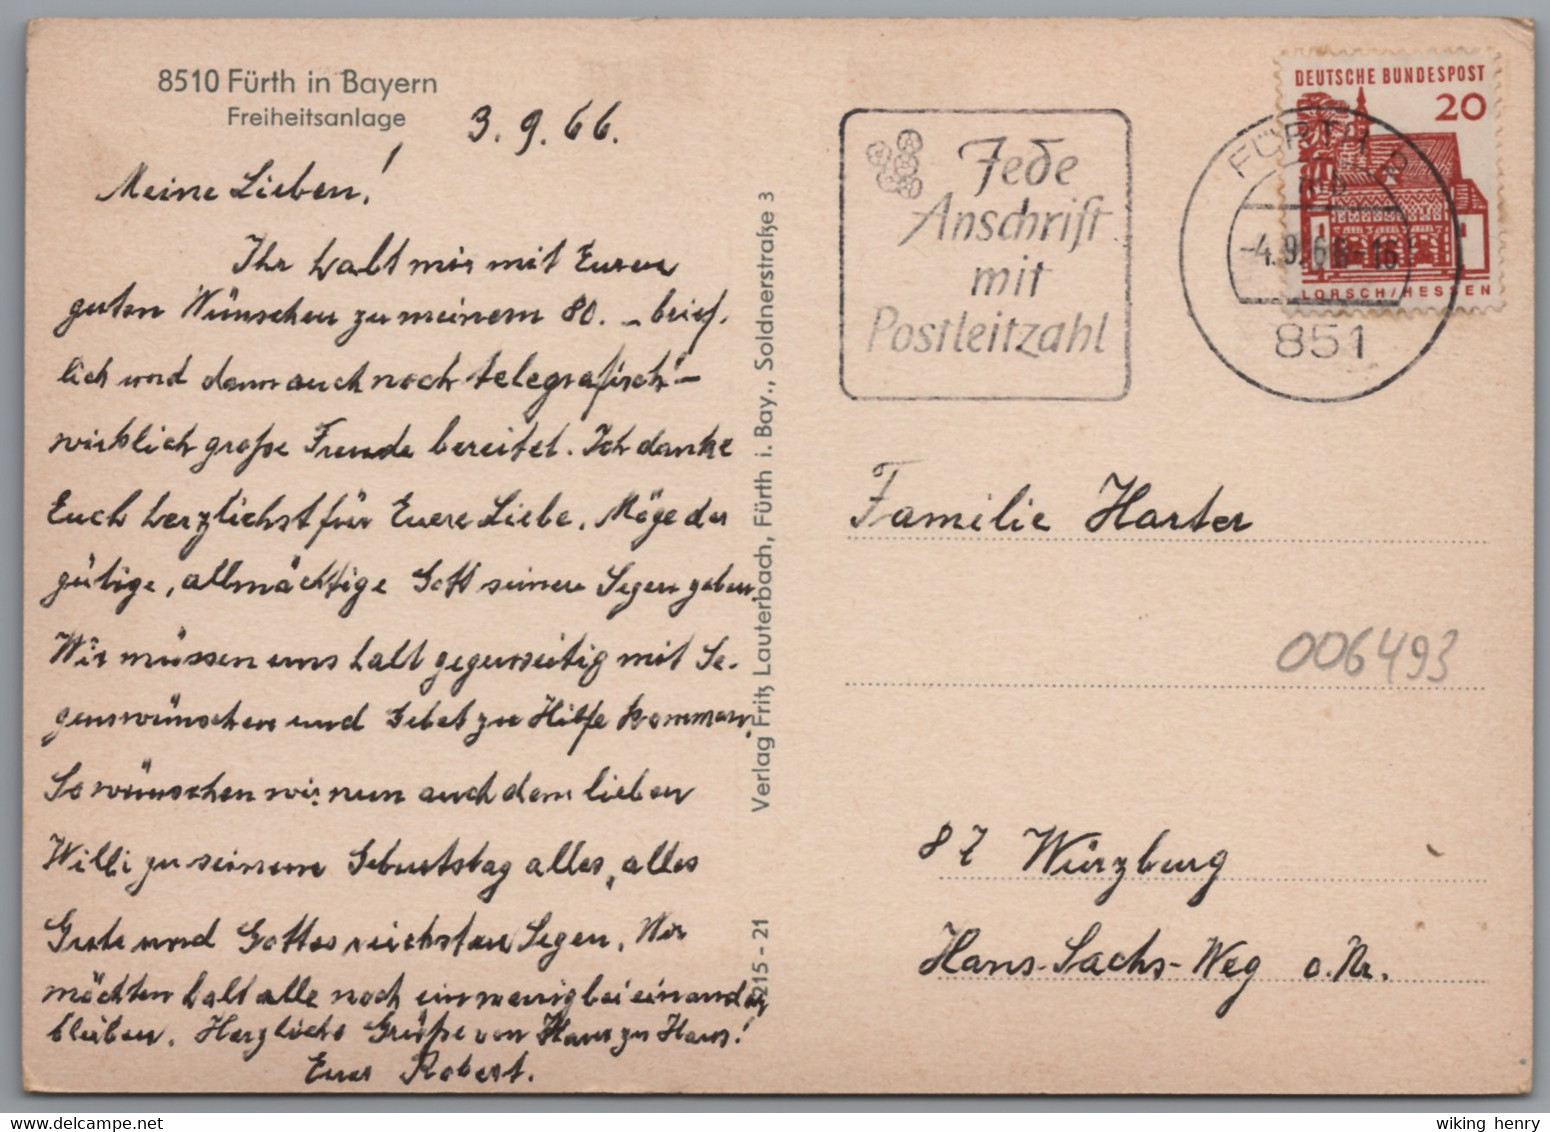 8510 Fürth in Bayern
Freiheitsanlage
3.9.66.
Meine Lieben!
Ihr habt mir mit Euren
guten Wünschen zu meinem 80. – brief-
lich und dann auch noch telegrafisch! –
wirklich große Freude bereitet. Ich danke
Euch herzlichst für Euere Liebe. Möge der
gütige, allmächtige Gott seinen Segen geben.
Wir müssen uns halt gegenseitig mit Se-
genswünschen und Gebet zu Hilfe kommen.
So wünschen wir nun auch dem lieben
Willi zu seinem Geburtstag alles, alles
Gute und Gottes reichsten Segen. Wir
möchten halt alle noch ein wenig beieinander
bleiben. Herzliche Grüße von Haus zu Haus!
Euer Robert.
Verlag Fritz Lauterbach, Fürth i. Bay., Soldnerstraße 3
215 - 21
Jede
Anschrift
mit
Postleitzahl
DEUTSCHE BUNDESPOST
20
LORSCH/HESSEN
FÜRTH, B
-4.9.66-16
851
Familie Harter
006493
87 Würzburg
Hans-Sachs-Weg o. Nr.
wiking henry